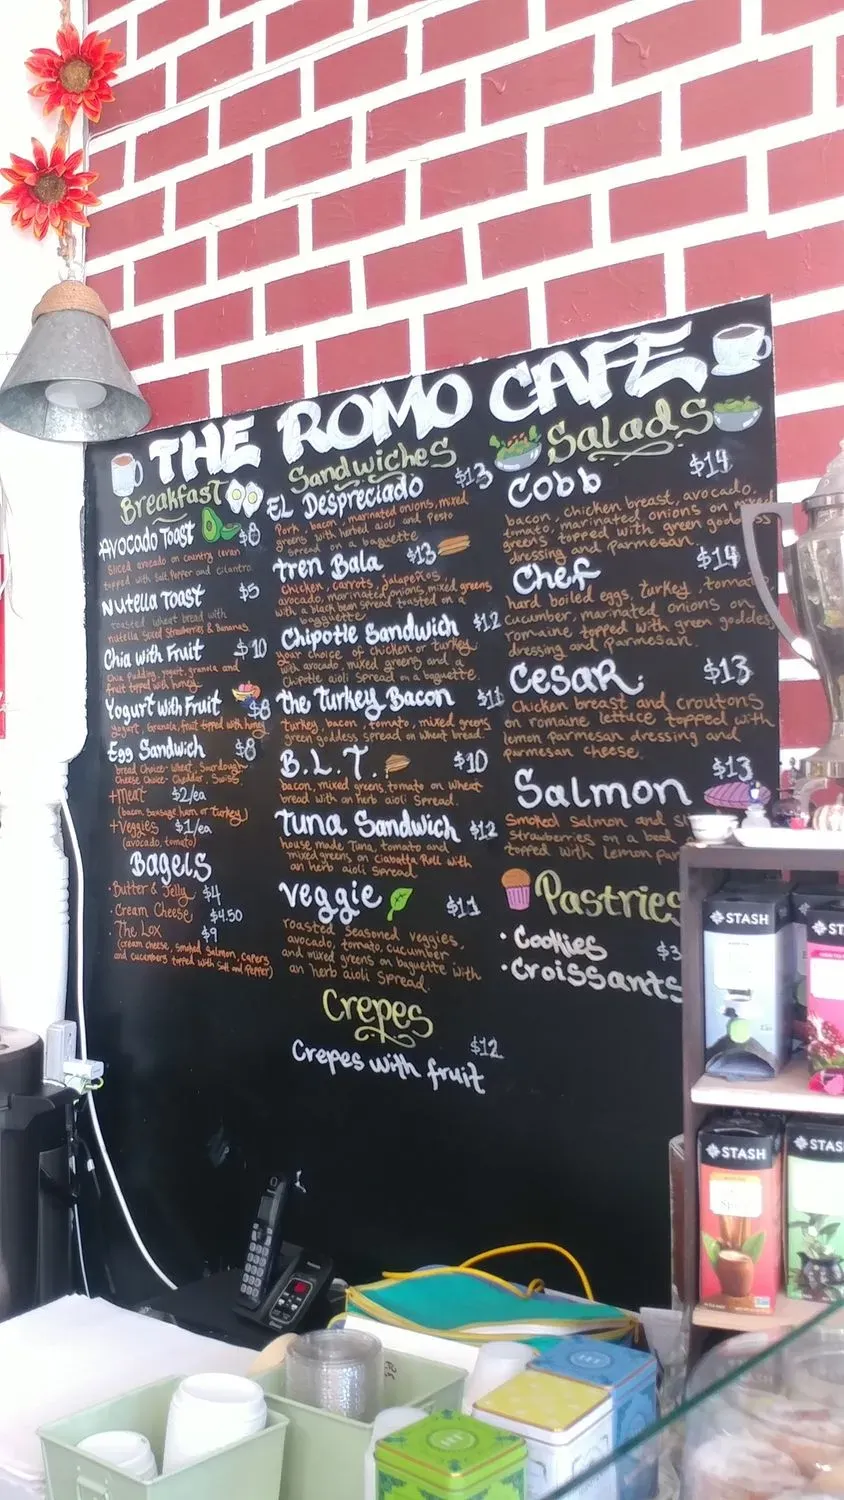 THE ROMO CAFE
Breakfast
Avocado Toast $8
Sliced avocado on country levan
topped with Salt, Pepper and Cilantro
Nutella Toast $5
toasted wheat bread with
nutella Sliced Strawberries & Bananas
Chia with Fruit $10
Chia Pudding, yogurt, granola and
fruit topped with honey
Yogurt with Fruit $8
Yogurt, Granola, fruit topped with honey
Egg Sandwich $8
bread Choice- Wheat, Sourdough
Cheese Choice- Cheddar, Swiss
+Meat $2/ea
(bacon, Sausage, ham or turkey)
+Veggies $1/ea
(avocado, tomato)
Bagels
· Butter & Jelly $4
· Cream Cheese $4.50
· The Lox $9
(cream cheese, smoked Salmon, capers
and cucumbers topped with Salt and Pepper)
Sandwiches
El Despreciado $13
Pork, bacon, marinated onions, mixed
greens with herbed aioli and Pesto
spread on a baguette
Tren Bala $13
Chicken, carrots, jalapeños,
avocado, marinated onions, mixed greens
with a black bean spread toasted on a
Chipotle Sandwich $12
your choice of chicken or turkey
with avocado, mixed greens and a
Chipotle aioli Spread on a baguette.
The Turkey Bacon $11
Turkey, bacon, tomato, mixed greens
green goddess spread on wheat bread.
B.L.T. $10
bacon, mixed greens, tomato on wheat
bread with an herb aioli Spread.
Tuna Sandwich $12
house made Tuna, tomato and
mixed greens on Ciabatta Roll with
an herb aioli Spread
Veggie $11
roasted Seasoned veggies,
avocado, tomato, cucumber
and mixed greens on baguette with
an herb aioli Spread.
Crepes
Crepes with fruit $12
Salads
Cobb $14
bacon, chicken breast, avocado,
tomato, marinated onions on mixed
greens topped with green goddess
dressing and Parmesan.
Chef $14
hard boiled eggs, turkey, tomato,
cucumber, marinated onions on
romaine topped with green goddess
dressing and parmesan.
Cesar $13
Chicken breast and croutons
on romaine lettuce topped with
lemon parmesan dressing and
parmesan cheese.
Salmon $13
Smoked Salmon and
Strawberries on a bed
topped with lemon
Pastries
· Cookies $3
· Croissants
STASH
STASH
STASH